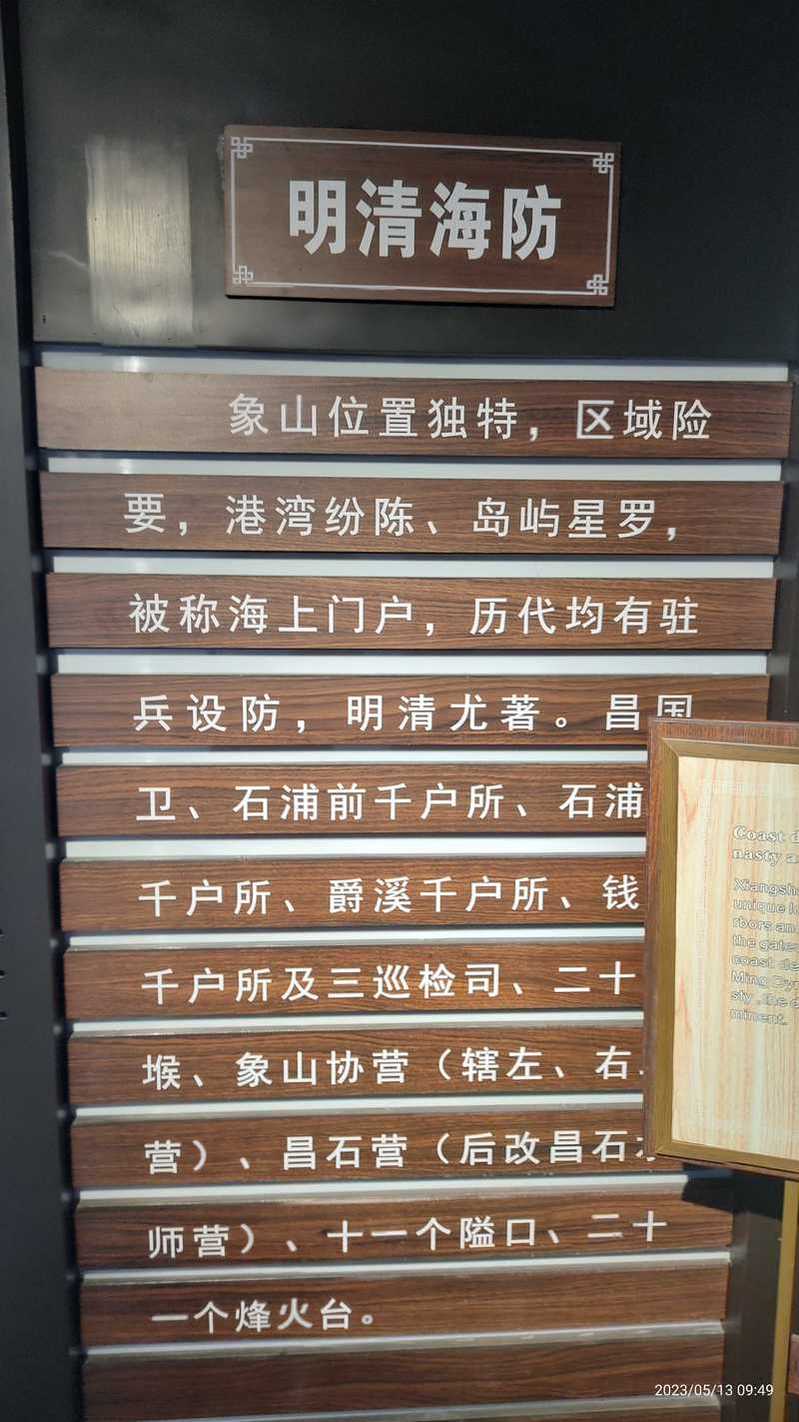 明清海防
象山位置独特，区域险
要，港湾纷陈、岛屿星罗，
被称海上门户，历代均有驻
兵设防，明清尤著。昌国
卫、石浦前千户所、石浦
千户所、爵溪千户所、钱
千户所及三巡检司、二十
堠、象山协营（辖左、右
营）、昌石营（后改昌石
师营）、十一个隘口、二十
一个烽火台。
Coast
nasty
Xiangsh
unique
rbors an
the gate
coast de
Ming Dy
sty, the
minent.
2023/05/13 09:49